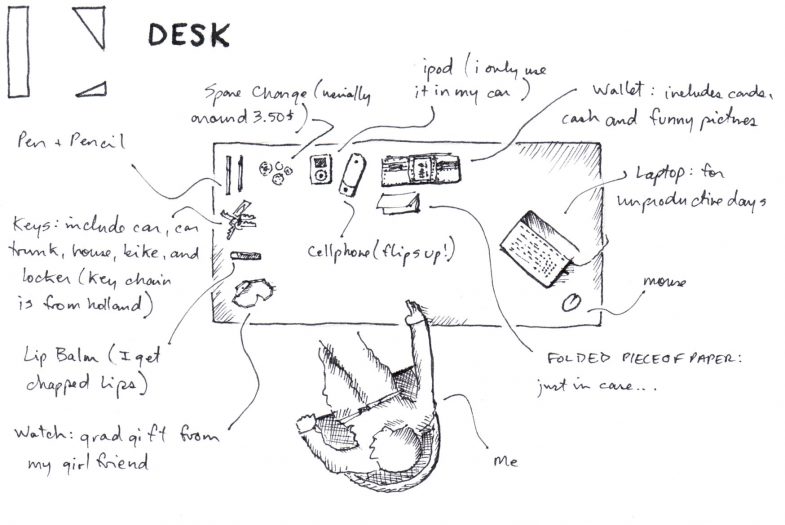 DESK
Spare Change (usually
around 3.50$)
ipod (i only use
it in my car)
Wallet: includes cards,
cash and funny pictures
Pen + Pencil
Laptop: for
unproductive days
Keys: include car, car
trunk, house, bike, and
locker (key chain
is from holland)
Cellphone (flips up!)
mouse
Lip Balm (I get
chapped lips)
FOLDED PIECE OF PAPER:
just in case...
Watch: grad gift from
my girlfriend
Me